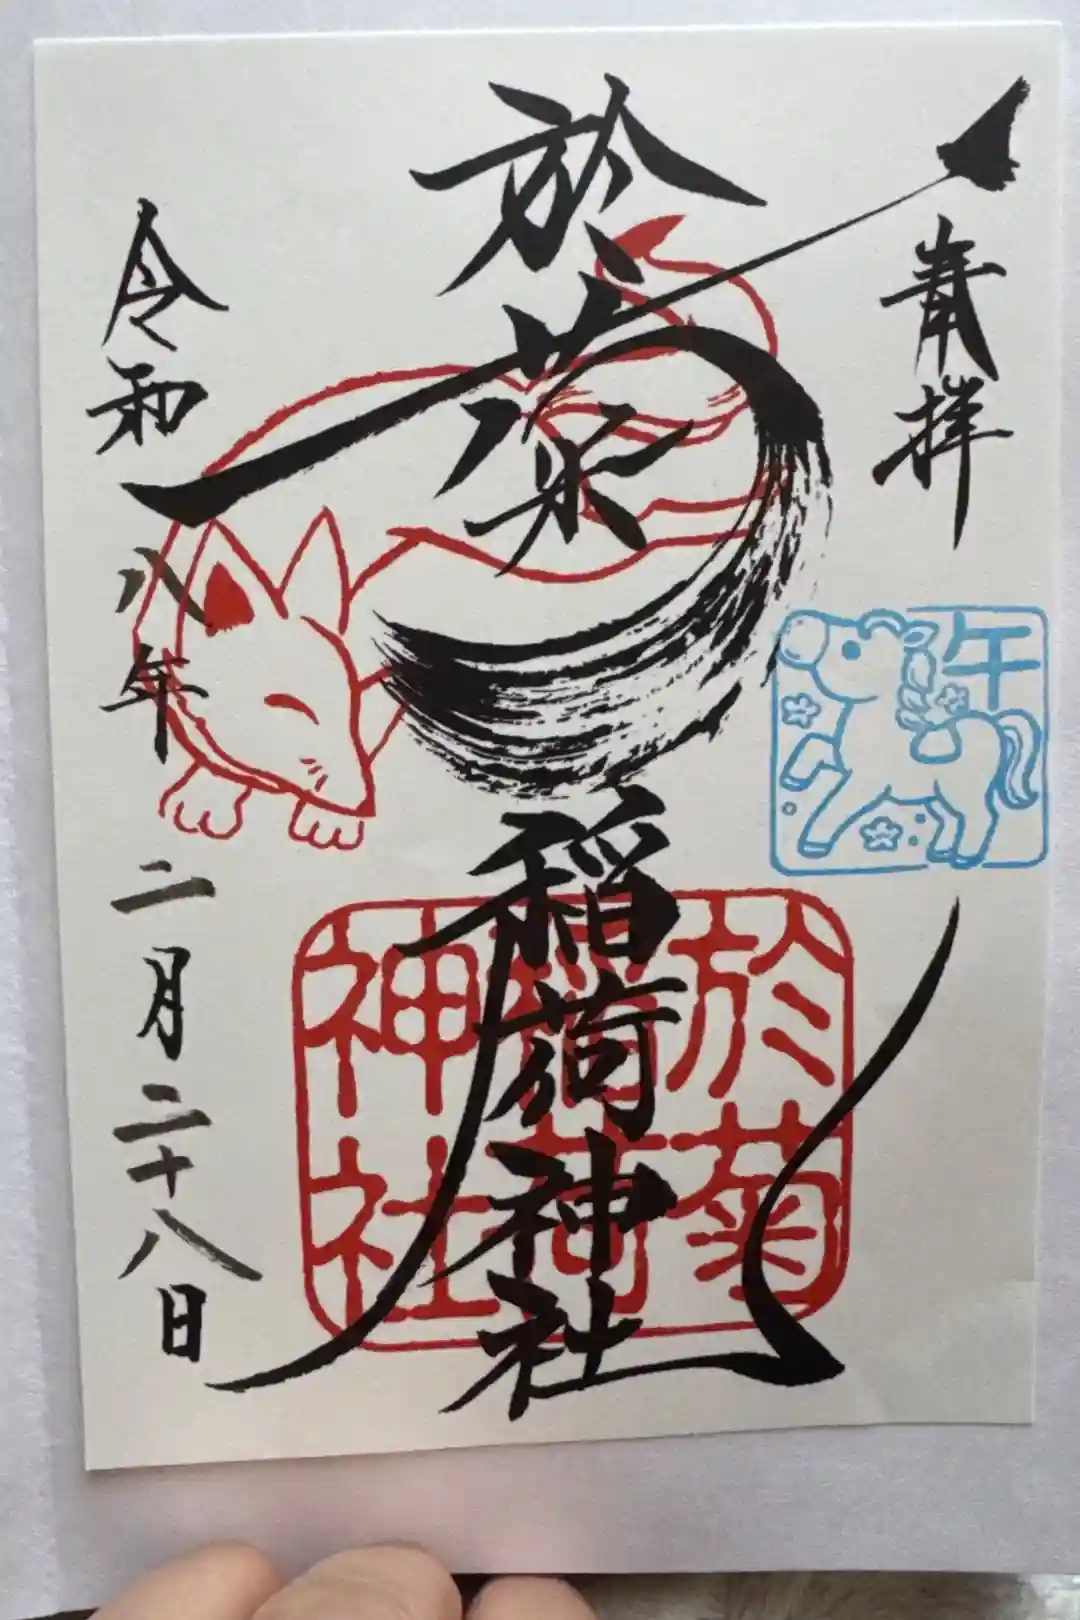 奉拝
於菊稲荷神社
令和八年二月二十八日
午
於菊
稲荷
神社